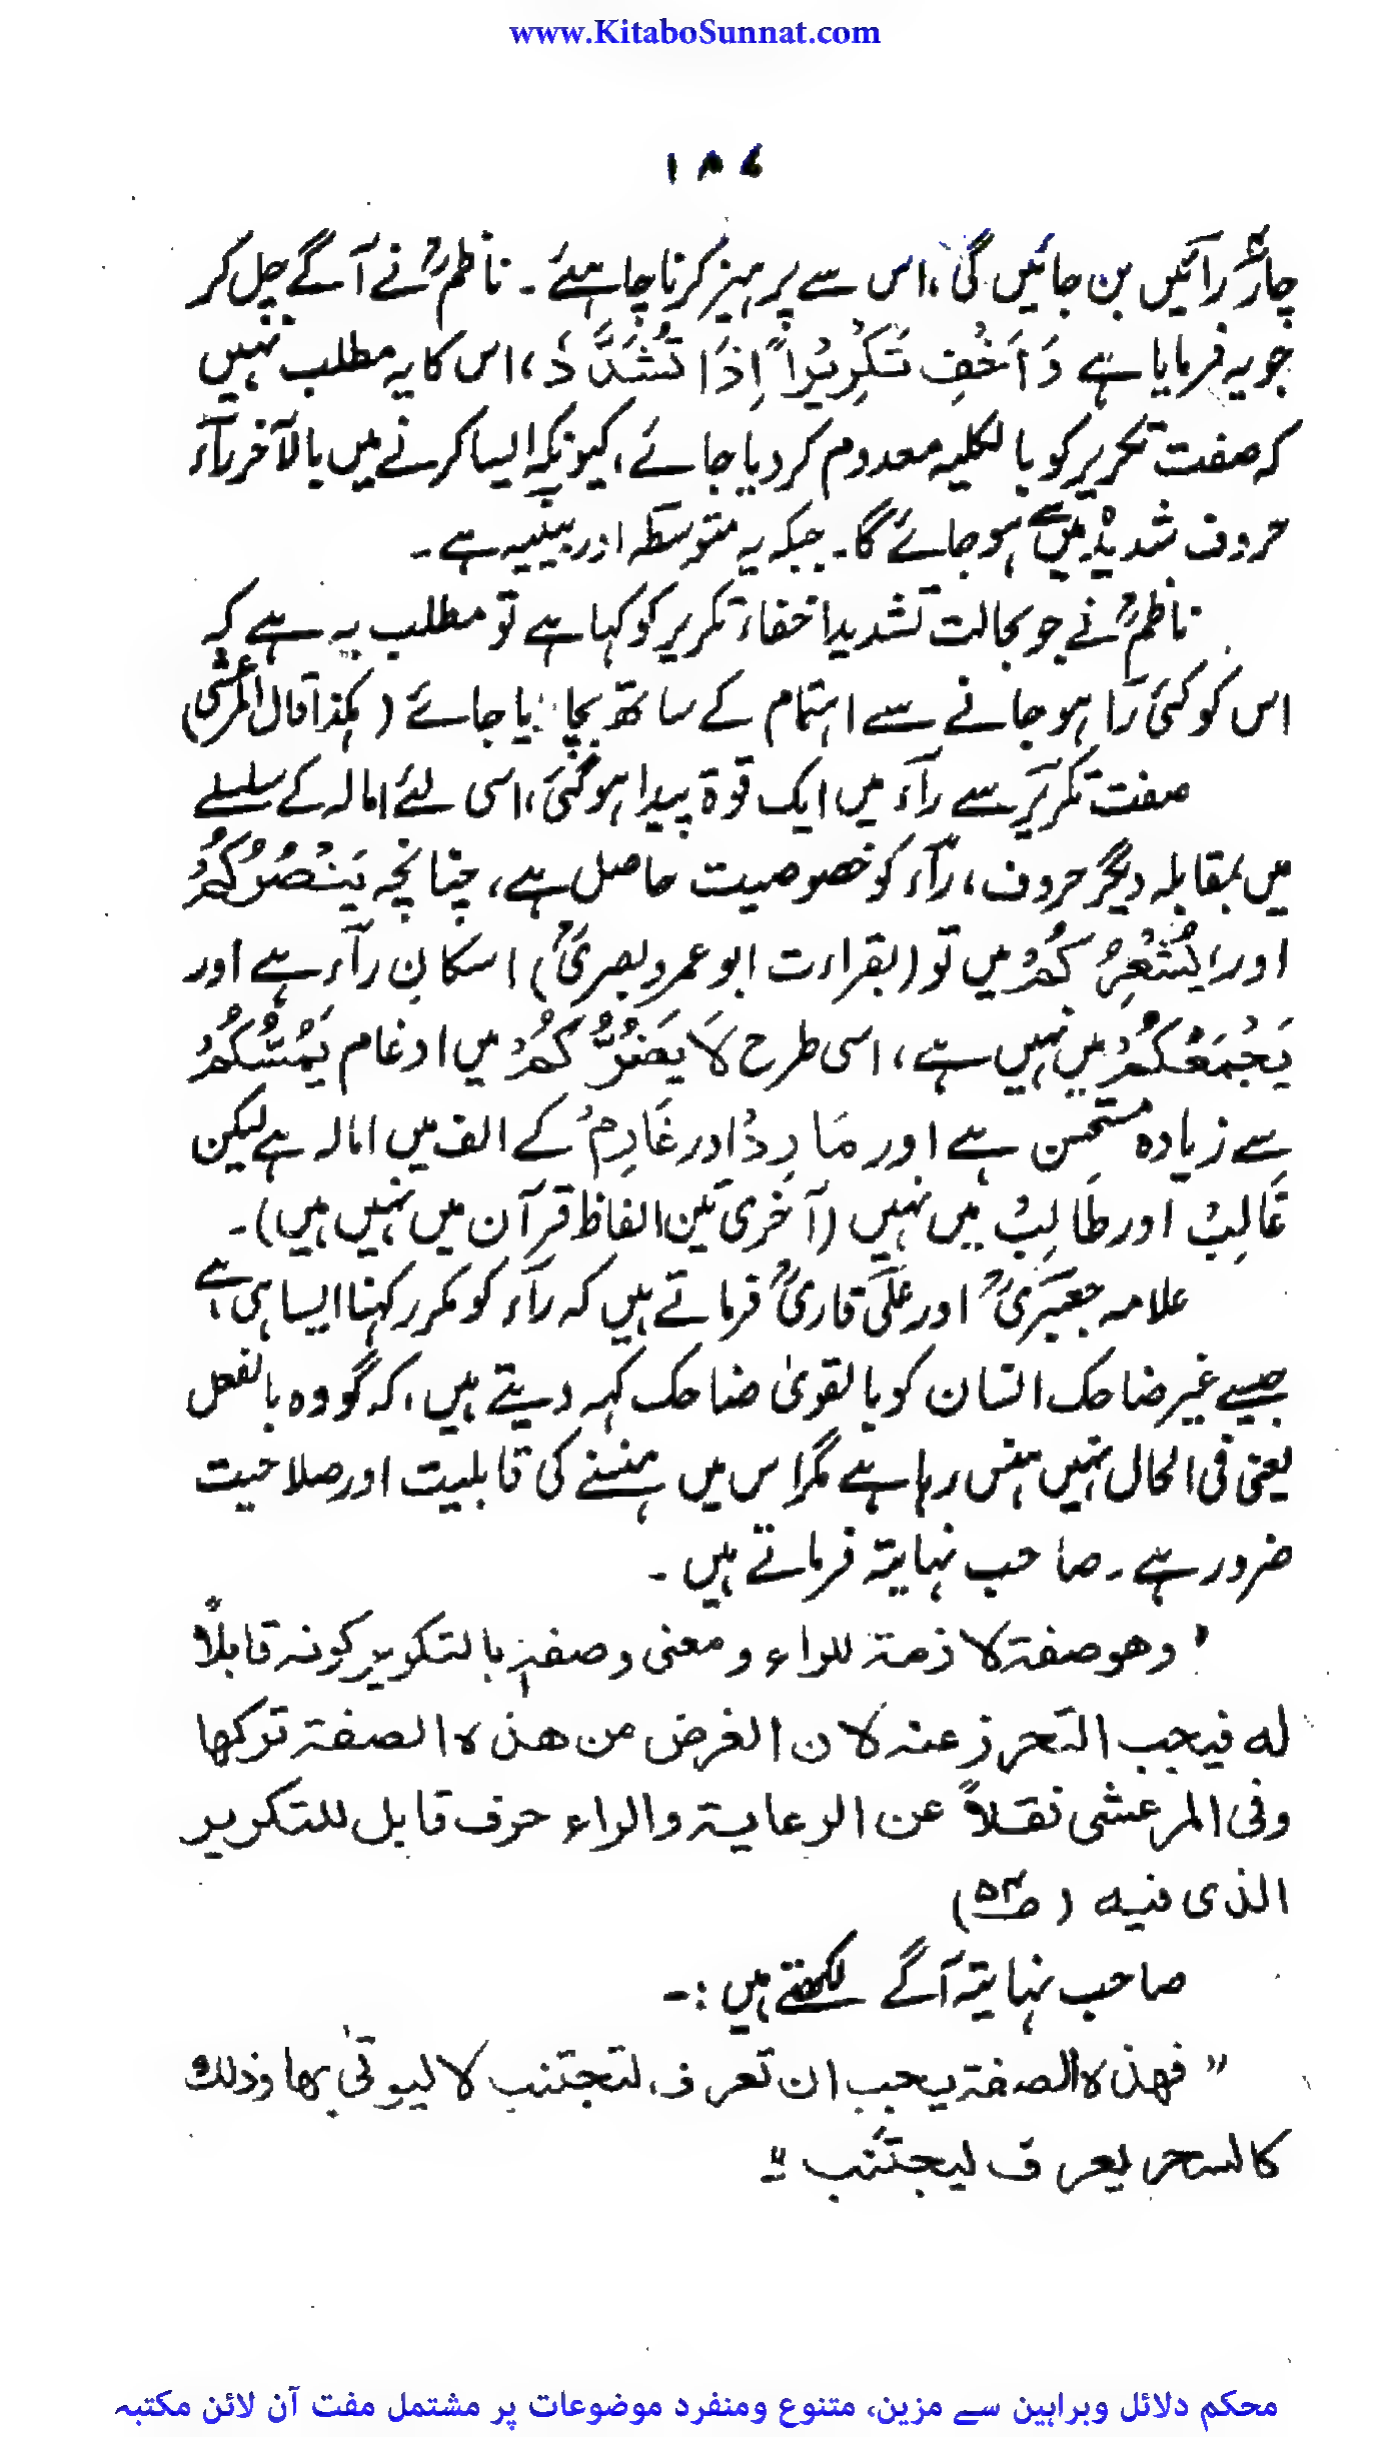 www.KitaboSunnat.com
۱۸۷
چار رائیں بن جائیں گی، اس سے پرہیز کرنا چاہئے۔ ناظمؒ نے آگے چل کر
جو یہ فرمایا ہے وَاَخْفِ تَكْرِيْرًا اِذَا تُشَدَّدُ، اس کا یہ مطلب نہیں
کہ صفت تکریر کو بالکلیہ معدوم کر دیا جائے، کیونکہ ایسا کرنے میں بالآخر رآء
حروف شدیدہ میں سے ہو جائے گا۔ جبکہ یہ متوسطہ اور بینیہ ہے۔
ناظمؒ نے جو بحالت تشدید اخفاء تکریر کو کہا ہے تو مطلب یہ ہے کہ
اس کو کئی رآ ہو جانے سے اہتمام کے ساتھ بچایا جائے (ہکذا قال المرعشی)
صفت تکریر سے رآء میں ایک قوۃ پیدا ہو گئی، اسی لئے امالہ کے سلسلے
میں بمقابلہ دیگر حروف، رآء کو خصوصیت حاصل ہے، چنانچہ يَنْصُرْكُمْ
اور يُشْعِرْكُمْ میں تو (بقراءت ابو عمرو بصریؒ) اسکانِ رآء ہے اور
يَجْمَعْكُمْ میں نہیں ہے، اسی طرح لَا يَضُرُّكُمْ میں ادغام يَمْسَسْكُمْ
سے زیادہ مستحسن ہے اور مَارِدٌ اور غَارِمٌ کے الف میں امالہ ہے لیکن
غَالِبٌ اور طَالِبٌ میں نہیں (آخری تین الفاظ قرآن میں نہیں ہیں)۔
علامہ جعبریؒ اور علی قاریؒ فرماتے ہیں کہ رآء کو مکرر کہنا ایسا ہی ہے
جیسے غیر ضاحک انسان کو بالقویٰ ضاحک کہہ دیتے ہیں، کہ گو وہ بالفعل
یعنی فی الحال نہیں ہنس رہا ہے مگر اس میں ہنسنے کی قابلیت اور صلاحیت
ضرور ہے۔ صاحب نہایۃ فرماتے ہیں۔
' وهو صفة لازمة للراء ومعنى وصفه بالتكرير كونه قابلاً
له فيجب التحرز عنه لان الغرض من هذه الصفة تركها
وفى المرعشى نقلاً عن الرعاية والراء حرف قابل للتكرير
الذى فيه (ص۵۳)
صاحب نہایۃ آگے لکھتے ہیں :۔
" فهذه الصفة يجب ان تعرف، لتجتنب لا ليوتى بها وذلك
كالسحر يعرف ليجتنب "
محکم دلائل وبراہین سے مزین، متنوع ومنفرد موضوعات پر مشتمل مفت آن لائن مکتبہ